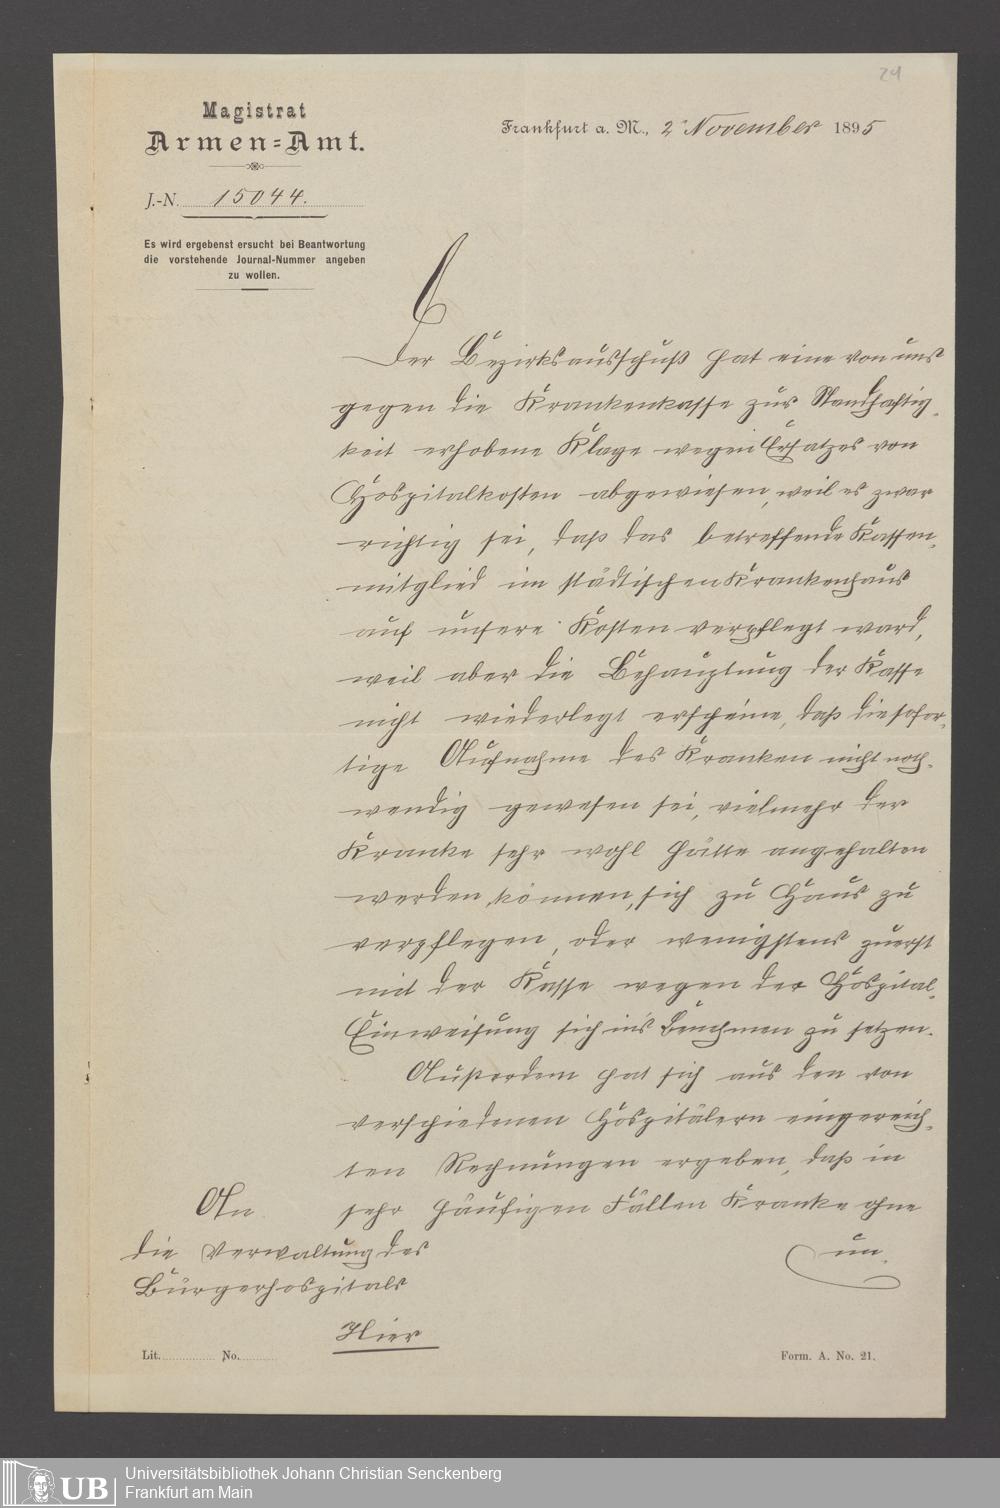 24
Magistrat
Armen=Amt.
Frankfurt a. M., 2t November 1895
J.-N. 15044.
Es wird ergebenst ersucht bei Beantwortung
die vorstehende Journal-Nummer angeben
zu wollen.
Der Bezirksausschuß hat eine von uns
gegen die Krankenkasse zur Standhaftig-
keit erhobene Klage wegen Ersatzes von
Hospitalkosten abgewiesen, weil es zwar
richtig sei, daß das betreffende Kassen-
mitglied im städtischen Krankenhaus
auf unsere Kosten verpflegt ward,
weil aber die Behauptung der Kasse
nicht wiederlegt erscheine, daß die sofor-
tige Aufnahme des Kranken nicht noth-
wendig gewesen sei, vielmehr der
Kranke sehr wohl hätte angehalten
werden können, sich zu Haus zu
verpflegen, oder wenigstens zuerst
mit der Kasse wegen der Hospital-
Einweisung sich in's Benehmen zu setzen.
Außerdem hat sich aus den von
verschiedenen Hospitälern eingereich-
ten Rechnungen ergeben, daß in
sehr häufigen Fällen Kranke ohne
un-
An
die Verwaltung des
Bürgerhospitals
Hier
Lit. No.
Form. A. No. 21.
UB
Universitätsbibliothek Johann Christian Senckenberg
Frankfurt am Main